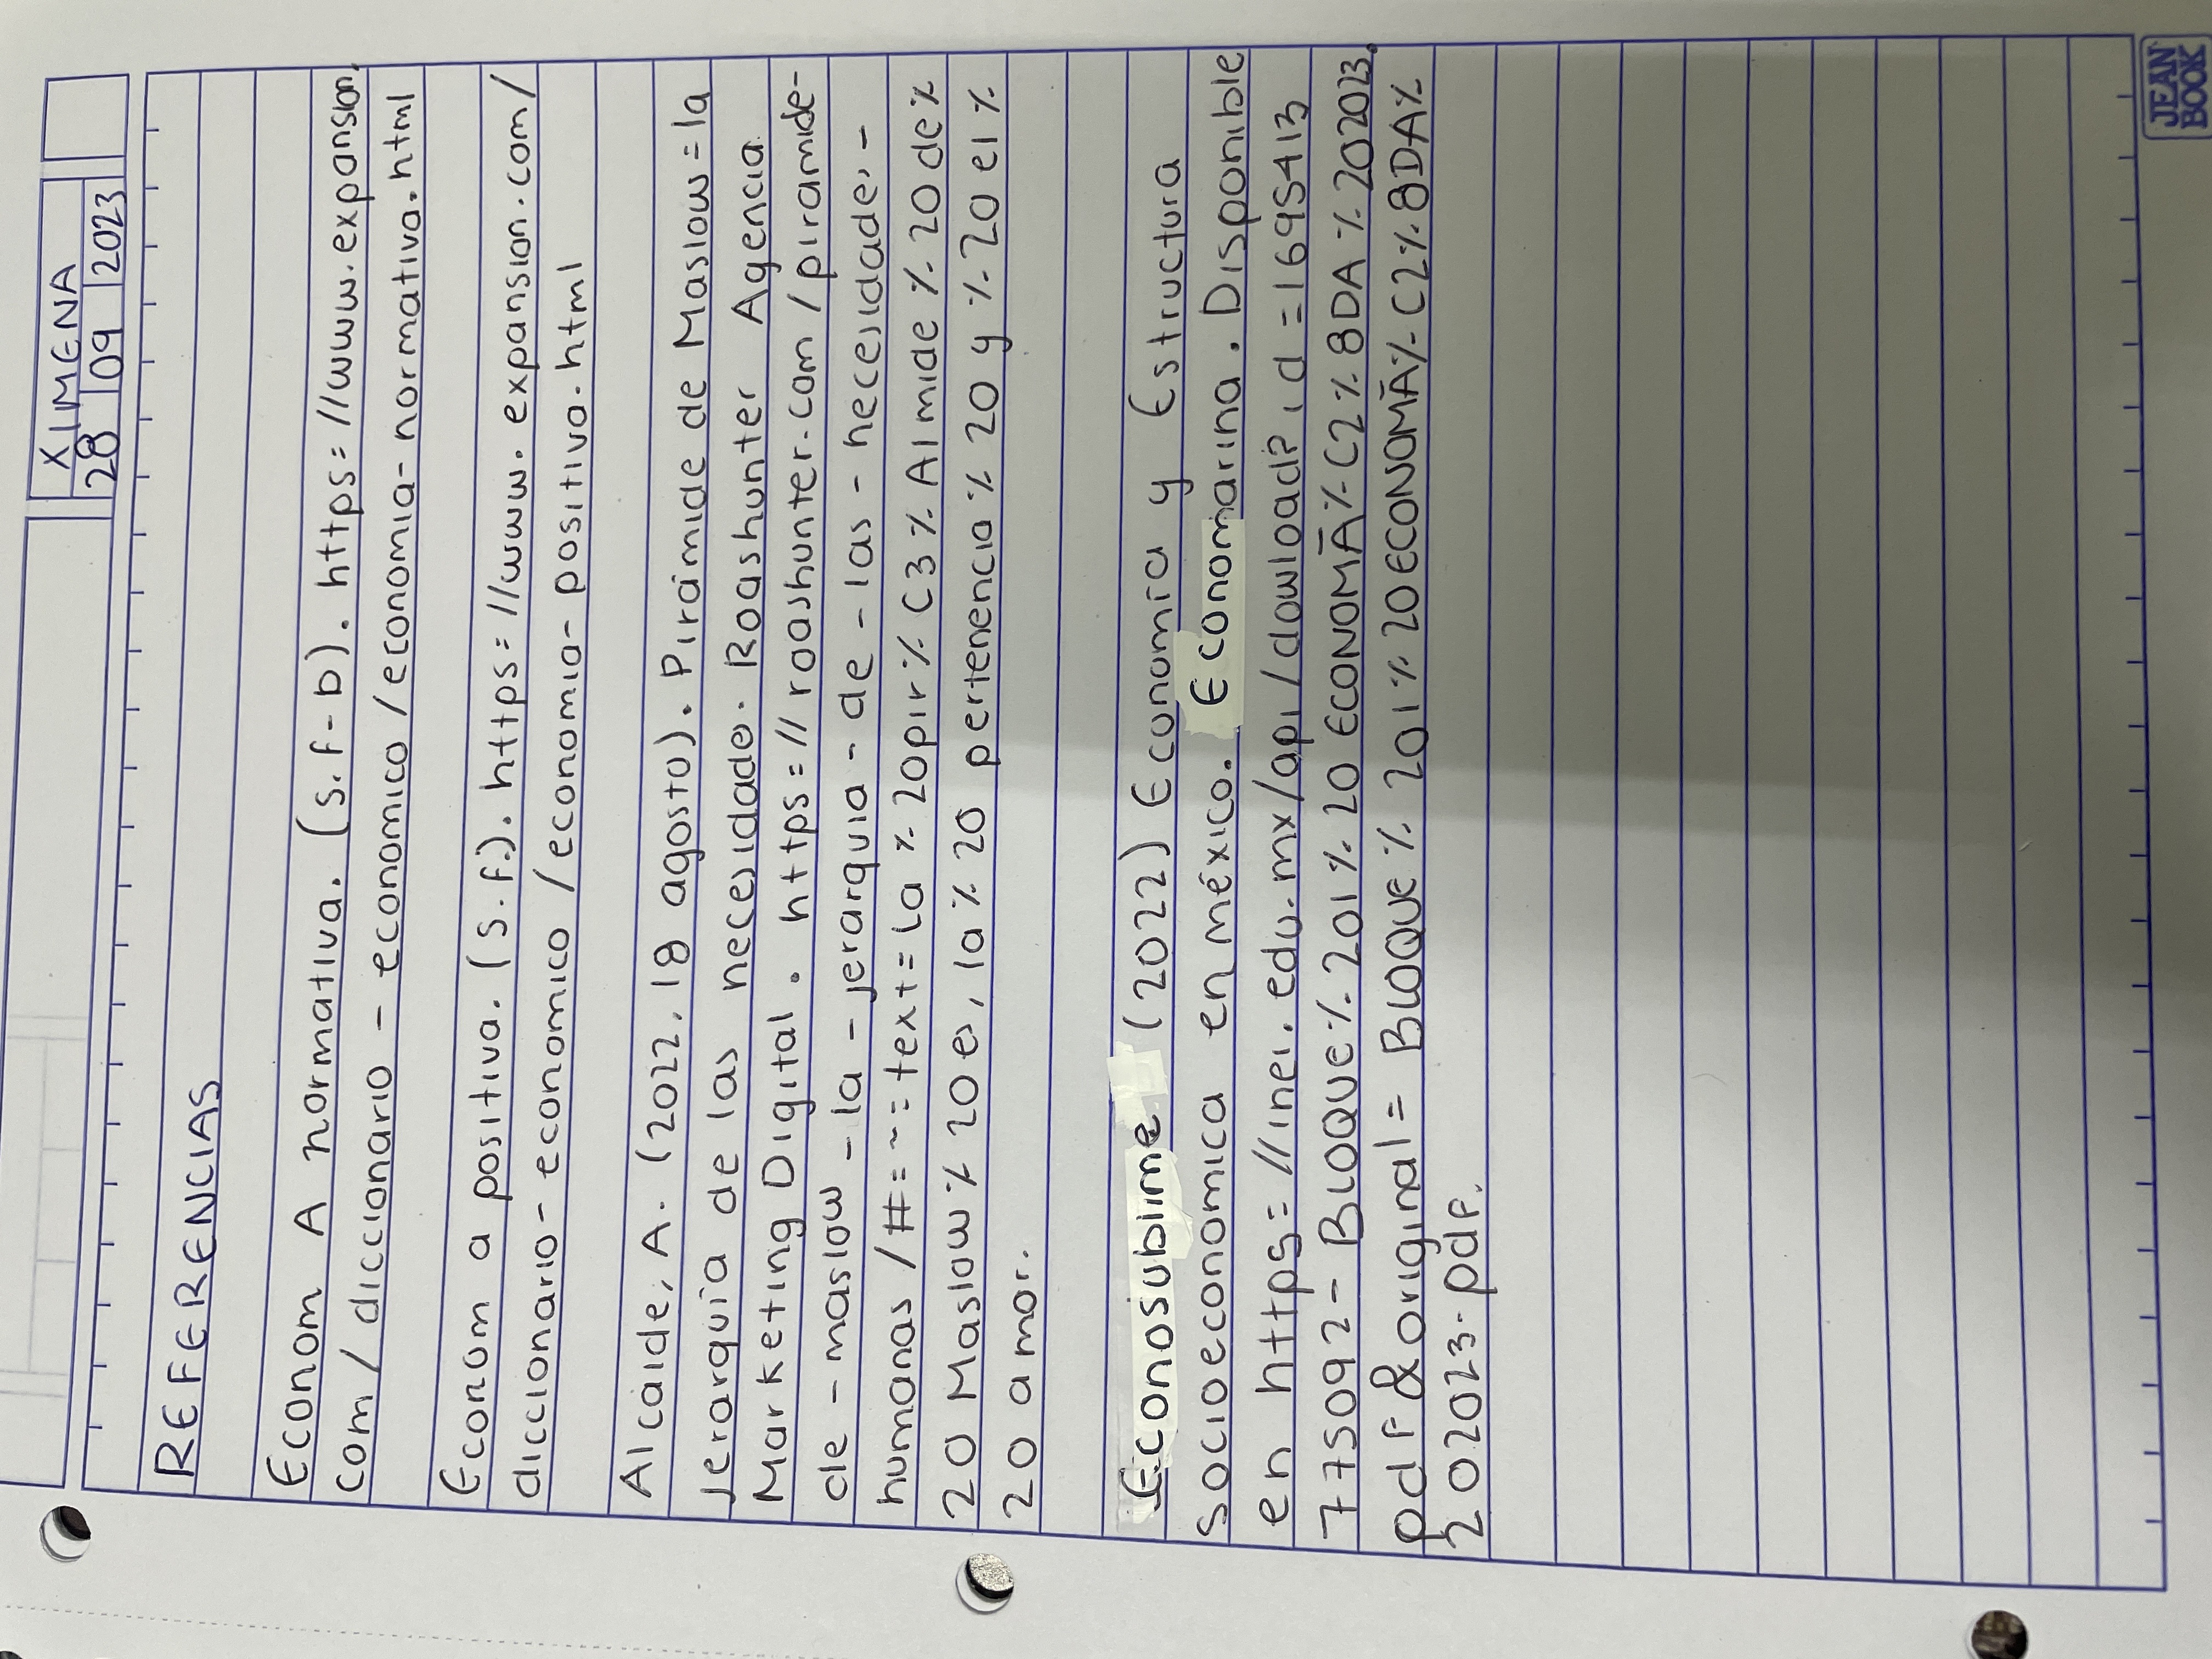 XIMENA
28 09 2023
REFERENCIAS
Econom A normativa. (s.f-b). https=//www.expansion.
com/ diccionario - economico /economia-normativa.html
Econom a positiva. (s.f.). https=//www.expansion.com/
diccionario-economico /economia-positiva.html
Alcaide, A. (2022, 18 agosto). Pirámide de Maslow=la
jerarquía de las necesidades. Roashunter Agencia
Marketing Digital. https=// roashunter.com /piramide-
de-maslow-la-jerarquia-de-las-necesidades-
humanas /#=~=text=la%20pir%C3%A1mide%20de%
20Maslow%20es,la%20 pertenencia%20y%20el%
20amor.
Econosublime (2022) Economía y Estructura
socioeconomica en méxico. Economarina. Disponible
en https=//inei.edu.mx/api/dowload?id=1695413
775092-BLOQUE%201%20ECONOMÃ%C2%8DA%202023.
pdf&original=BLOQUE%201%20ECONOMÃ%C2%8DA%
202023.pdf.
JEAN
BOOK